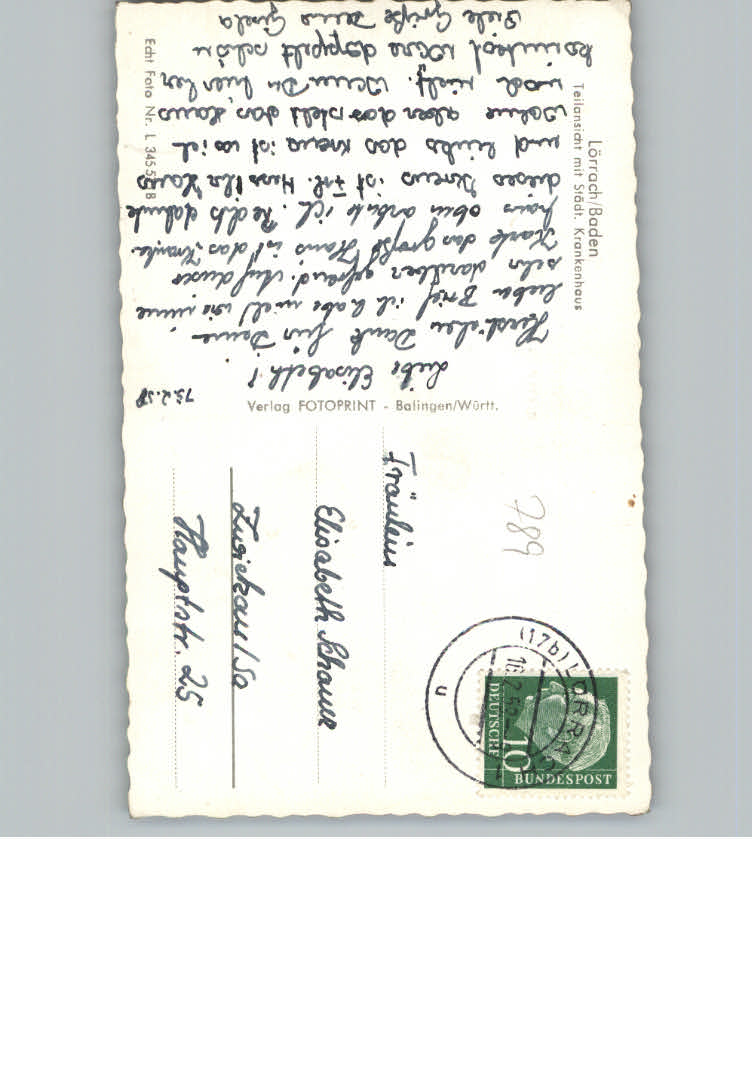 Lörrach/Baden
Teilansicht mit Städt. Krankenhaus
Echt Foto Nr. L 3455/58
Verlag FOTOPRINT - Balingen/Württ.
Liebe Elisabeth!
Herzlichen Dank für Deine
lieben Brief, ich habe mich
sehr darüber gefreut. Auf dieser
Karte das große Haus ist das Kranken-
haus oben arbeite ich. Rechts
dieses Kreuz ist Frl. Haus
und links das Kreuz ist wo ich
wohne aber da steht das Haus
noch nicht. Wenn Du hierher
kommst wäre doppelt schön
Viele Grüße Deine Gisela
Fräulein
Elisabeth Schaue
Zwickau/Sa
Hauptstr. 25
789
(17b) LÖRRACH
DEUTSCHE
BUNDESPOST
10